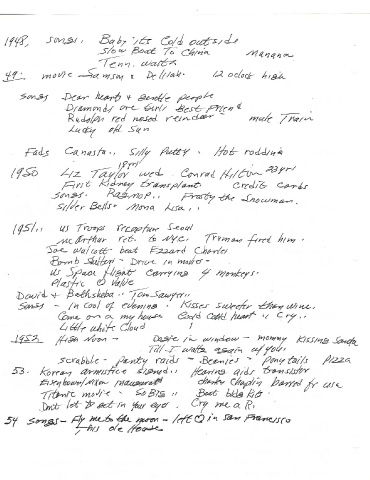 1948, songs. Baby its Cold outside
Slow Boat To China Manana
Tenn. waltz
49: movie Samson & Delilah. 12 oclock high
songs Dear hearts & Gentle people
Diamonds are Girls Best Friend
Rudolph red nosed reindeer mule Train
Lucky old Sun
Fads Canasta.. Silly Putty. Hot rodding
1950 Liz Taylor wed Conrad Hilton 23yr
18yr
First Kidney transplant Credit Cards
songs. Ragmop.. Frosty the Snowman.
Silver Bells. Mona Lisa..
1951.. US Troops recapture Seoul
McArthur ret. to NYC. Truman fired him.
Joe Walcott beat Ezzard Charles
Bomb Shelters - Drive in movies -
US Space flight carrying 4 monkeys.
Plastic Valve
David & Bathsheba.. Tom Sawyer..
Songs - in Cool of evening. Kisses sweeter than wine.
Come on a my house Cold Cold heart.. Cry..
Little white Cloud
1952 High Noon - in window - mommy Kissing Santa
Till I waltz again w/you.
scrabble - panty raids - Beanies - Pony tails Pizza
53. Korean armistice signed.. Hearing aids transistor
Eisenhower/Nixon inaugurated Charlie Chaplin barred fr USA
Titanic movie - So Big.. Boat bldg Kits.
Dont let stars get in your eyes. Cry me a R.
54 songs - Fly me to the moon - left in San Francisco
This ole House